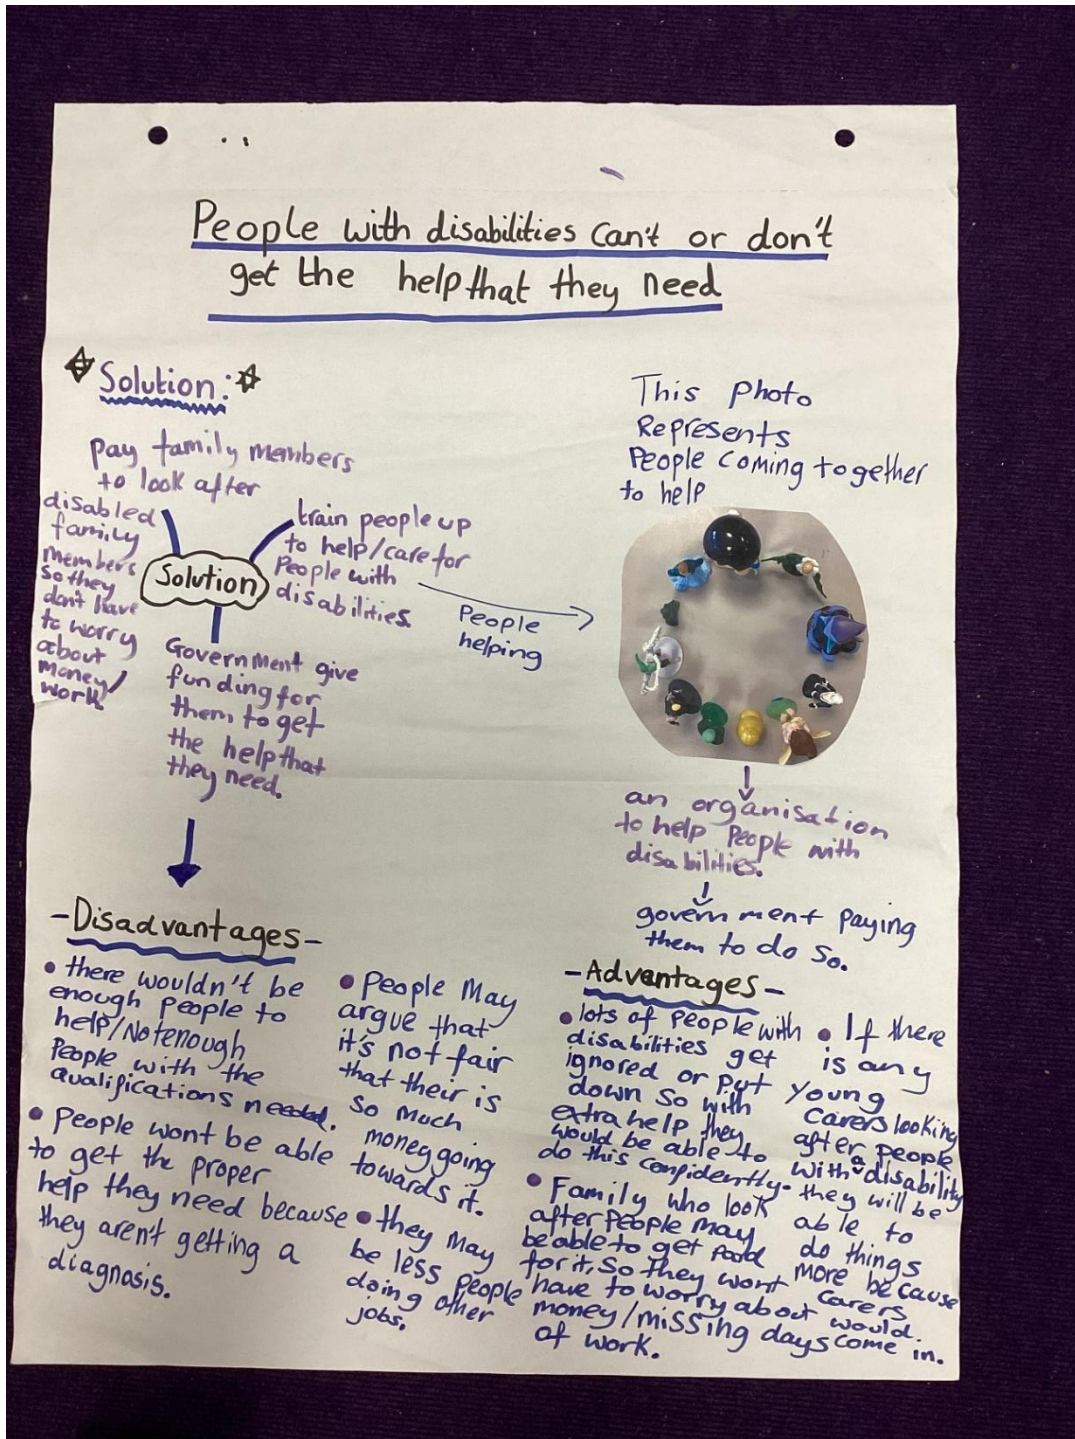 People with disabilities can't or don't
get the help that they need
Solution:
pay family members
to look after
disabled
family
members
so they
don't have
to worry
about
money/
work
Solution
train people up
to help/care for
People with
disabilities.
Government give
funding for
them to get
the help that
they need.
People
helping
This Photo
Represents
People coming together
to help
an organisation
to help People with
disabilities.
government paying
them to do so.
-Disadvantages-
• there wouldn't be
enough people to
help/Not enough
People with the
qualifications needed.
• People wont be able
to get the proper
help they need because
they aren't getting a
diagnosis.
• People May
argue that
it's not fair
that their is
so much
money going
towards it.
• they May
be less people
doing other
jobs.
-Advantages-
• lots of people with
disabilities get
ignored or put
down so with
extra help they
would be able to
do this confidently.
• Family who look
after People may
be able to get paid
for it, So they wont
have to worry about
money/missing days
of work.
• If there
is any
young
carers looking
after people
with a disability
they will be
able to
do things
more because
carers
would
come in.